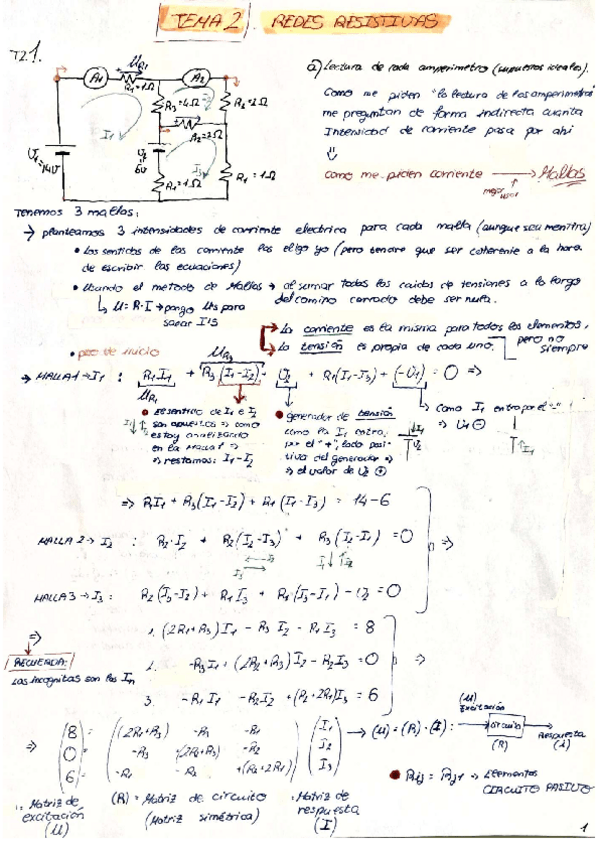 TEMA 2. REDES RESISTIVAS
T2.1.
A1
UR1
R1=1Ω
A2
R3=4Ω
R2=2Ω
R2=2Ω
I1
I3
U1=14V
U2
6V
R1=1Ω
R1=1Ω
a) Lectura de cada amperimetro (supuestos ideales).
Como me piden "la lectura de los amperimetros
me preguntan de forma indirecta cuanta
Intensidad de corriente pasa por ahi
⇓
como me piden corriente → Mallas
mejor usar
Tenemos 3 mallas:
→ planteamos 3 intensidades de corriente electrica para cada malla (aunque sea mentira)
• Los sentidos de las corriente las elijo yo (pero tendre que ser coherente a la hora
de escribir las ecuaciones)
• Usando el metodo de Mallas → al sumar todas las caidas de tensiones a lo largo
del camino cerrado debe ser nula.
↳ U=R·I → pongo Us para
sacar I's
La corriente es la misma para todos los elementos,
pero no siempre
La tensión es propia de cada uno.
• pto de inicio
UR3
→ MALLA 1 → I1 : R1I1 + R3(I1-I2) + U2 + R1(I1-I3) + (-U1) = 0 ⇒
UR1
• El sentido de I1 e I2
son opuestos ⇒ como
estoy analizando
en la malla 1 ⇒
⇒ restamos: I1-I2
• generador de tensión
como la I1 entra
por el "+", lado posi-
tiva del generador ⇒
⇒ el valor de U2 ⊕
↳ Como I1 entra por el "-"
⇒ U1 ⊖
⇒ R1I1 + R3(I1-I2) + R1(I1-I3) = 14-6
MALLA 2 → I2 : R2·I2 + R2(I2-I3) + R3(I2-I1) = 0 ⇒
MALLA 3 → I3 : R2(I3-I2) + R1I3 + R1·(I3-I1) - U2 = 0
⇒ 1. (2R1+R3)I1 - R3I2 - R1I3 = 8
RECUERDA:
Las incognitas son las In
2. -R3I1 + (2R2+R3)I2 - R2I3 = 0 ⇒
3. -R1I1 - R2I2 + (R2+2R1)I3 = 6
⇒ (8 = ((2R1+R3) -R3 -R1) (I1
0 = (-R3 +(2R2+R3) -R2) I2
6) = (-R1 -R2 +(R2+2R1)) I3)
→ (U) = (R)·(I) :
(U)
Excitación
Circuito
(R)
Respuesta
(I)
• Rij = Rji → Elementos
CIRCUITO PASIVO
: Matriz de
excitación
(U)
(R) = Matriz de circuito
(Matriz simétrica)
: Matriz de
respuesta
(I)
1